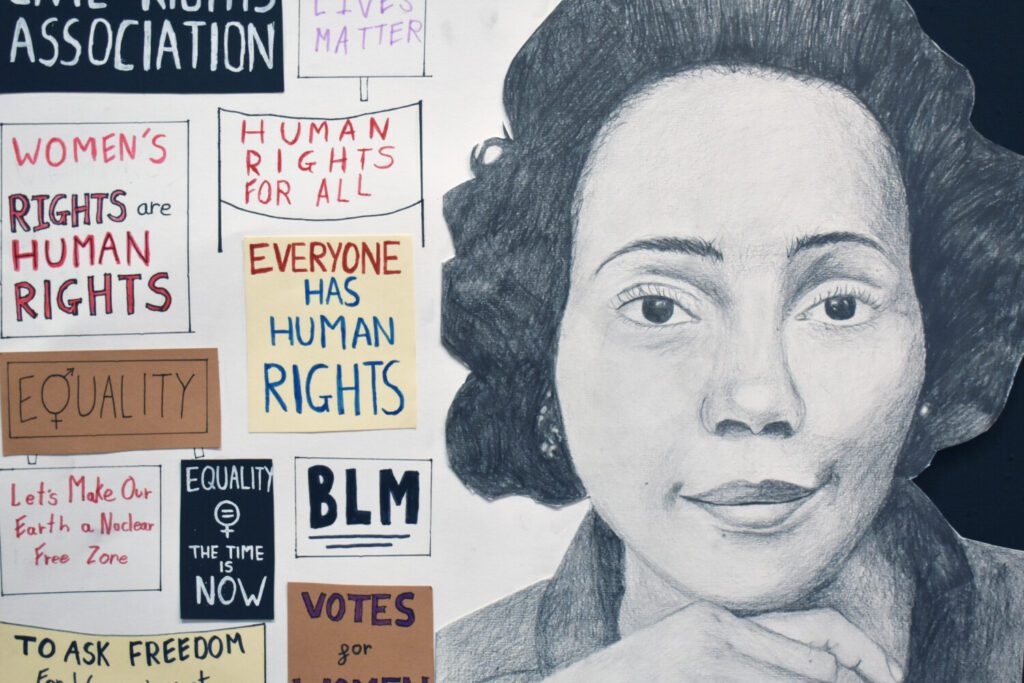 CIVIL RIGHTS
ASSOCIATION
LIVES
MATTER
WOMEN'S
RIGHTS are
HUMAN
RIGHTS
HUMAN
RIGHTS
FOR ALL
EVERYONE
HAS
HUMAN
RIGHTS
EQUALITY
Let's Make Our
Earth a Nuclear
Free Zone
EQUALITY
=
THE TIME
IS
NOW
BLM
TO ASK FREEDOM
For Women is not
VOTES
for
WOMEN